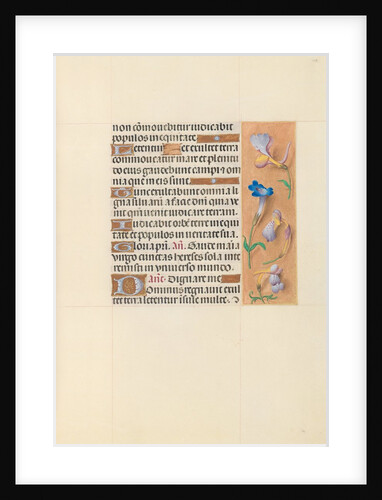 non cōmouebitur iudicabit
populos in equitate
Letentur et exultet terra
commoueatur mare et plenitu
do eius gaudebunt campi et om
nia que in eis sunt
Tunc exultabunt omnia li
gna siluarū a facie dn̄i quia ve
nit quoniā uenit iudicare terrā
Iudicabit orbē terre in equi
tate et populos in ueritate sua
Gloria pr̄i. An̄. Gaude maria
virgo cunctas hereses sola inte
remisti in vniuerso mundo.
An̄. Dignare me
Dominus regnauit exul
tet terra letentur insule multe.